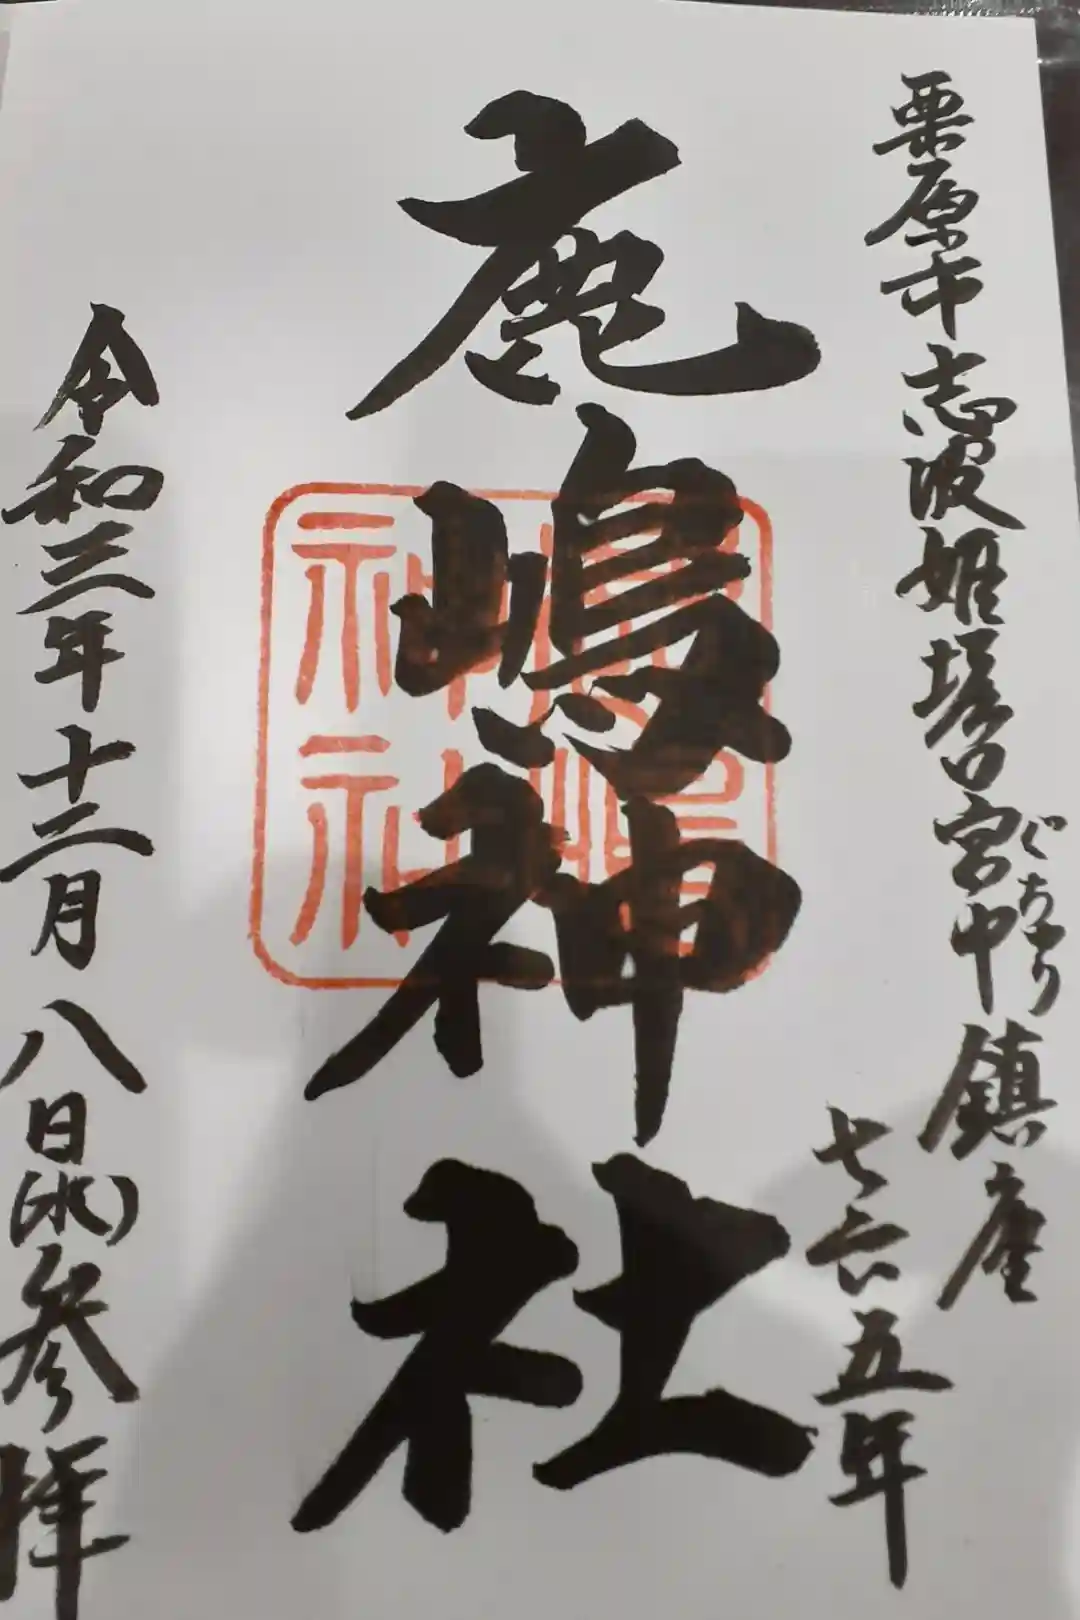 栗原市志波姫堀口宮中鎮座
ぐちゅう
七六五年
鹿嶋神社
鹿嶋
神社
令和三年十二月八日(水)参拝